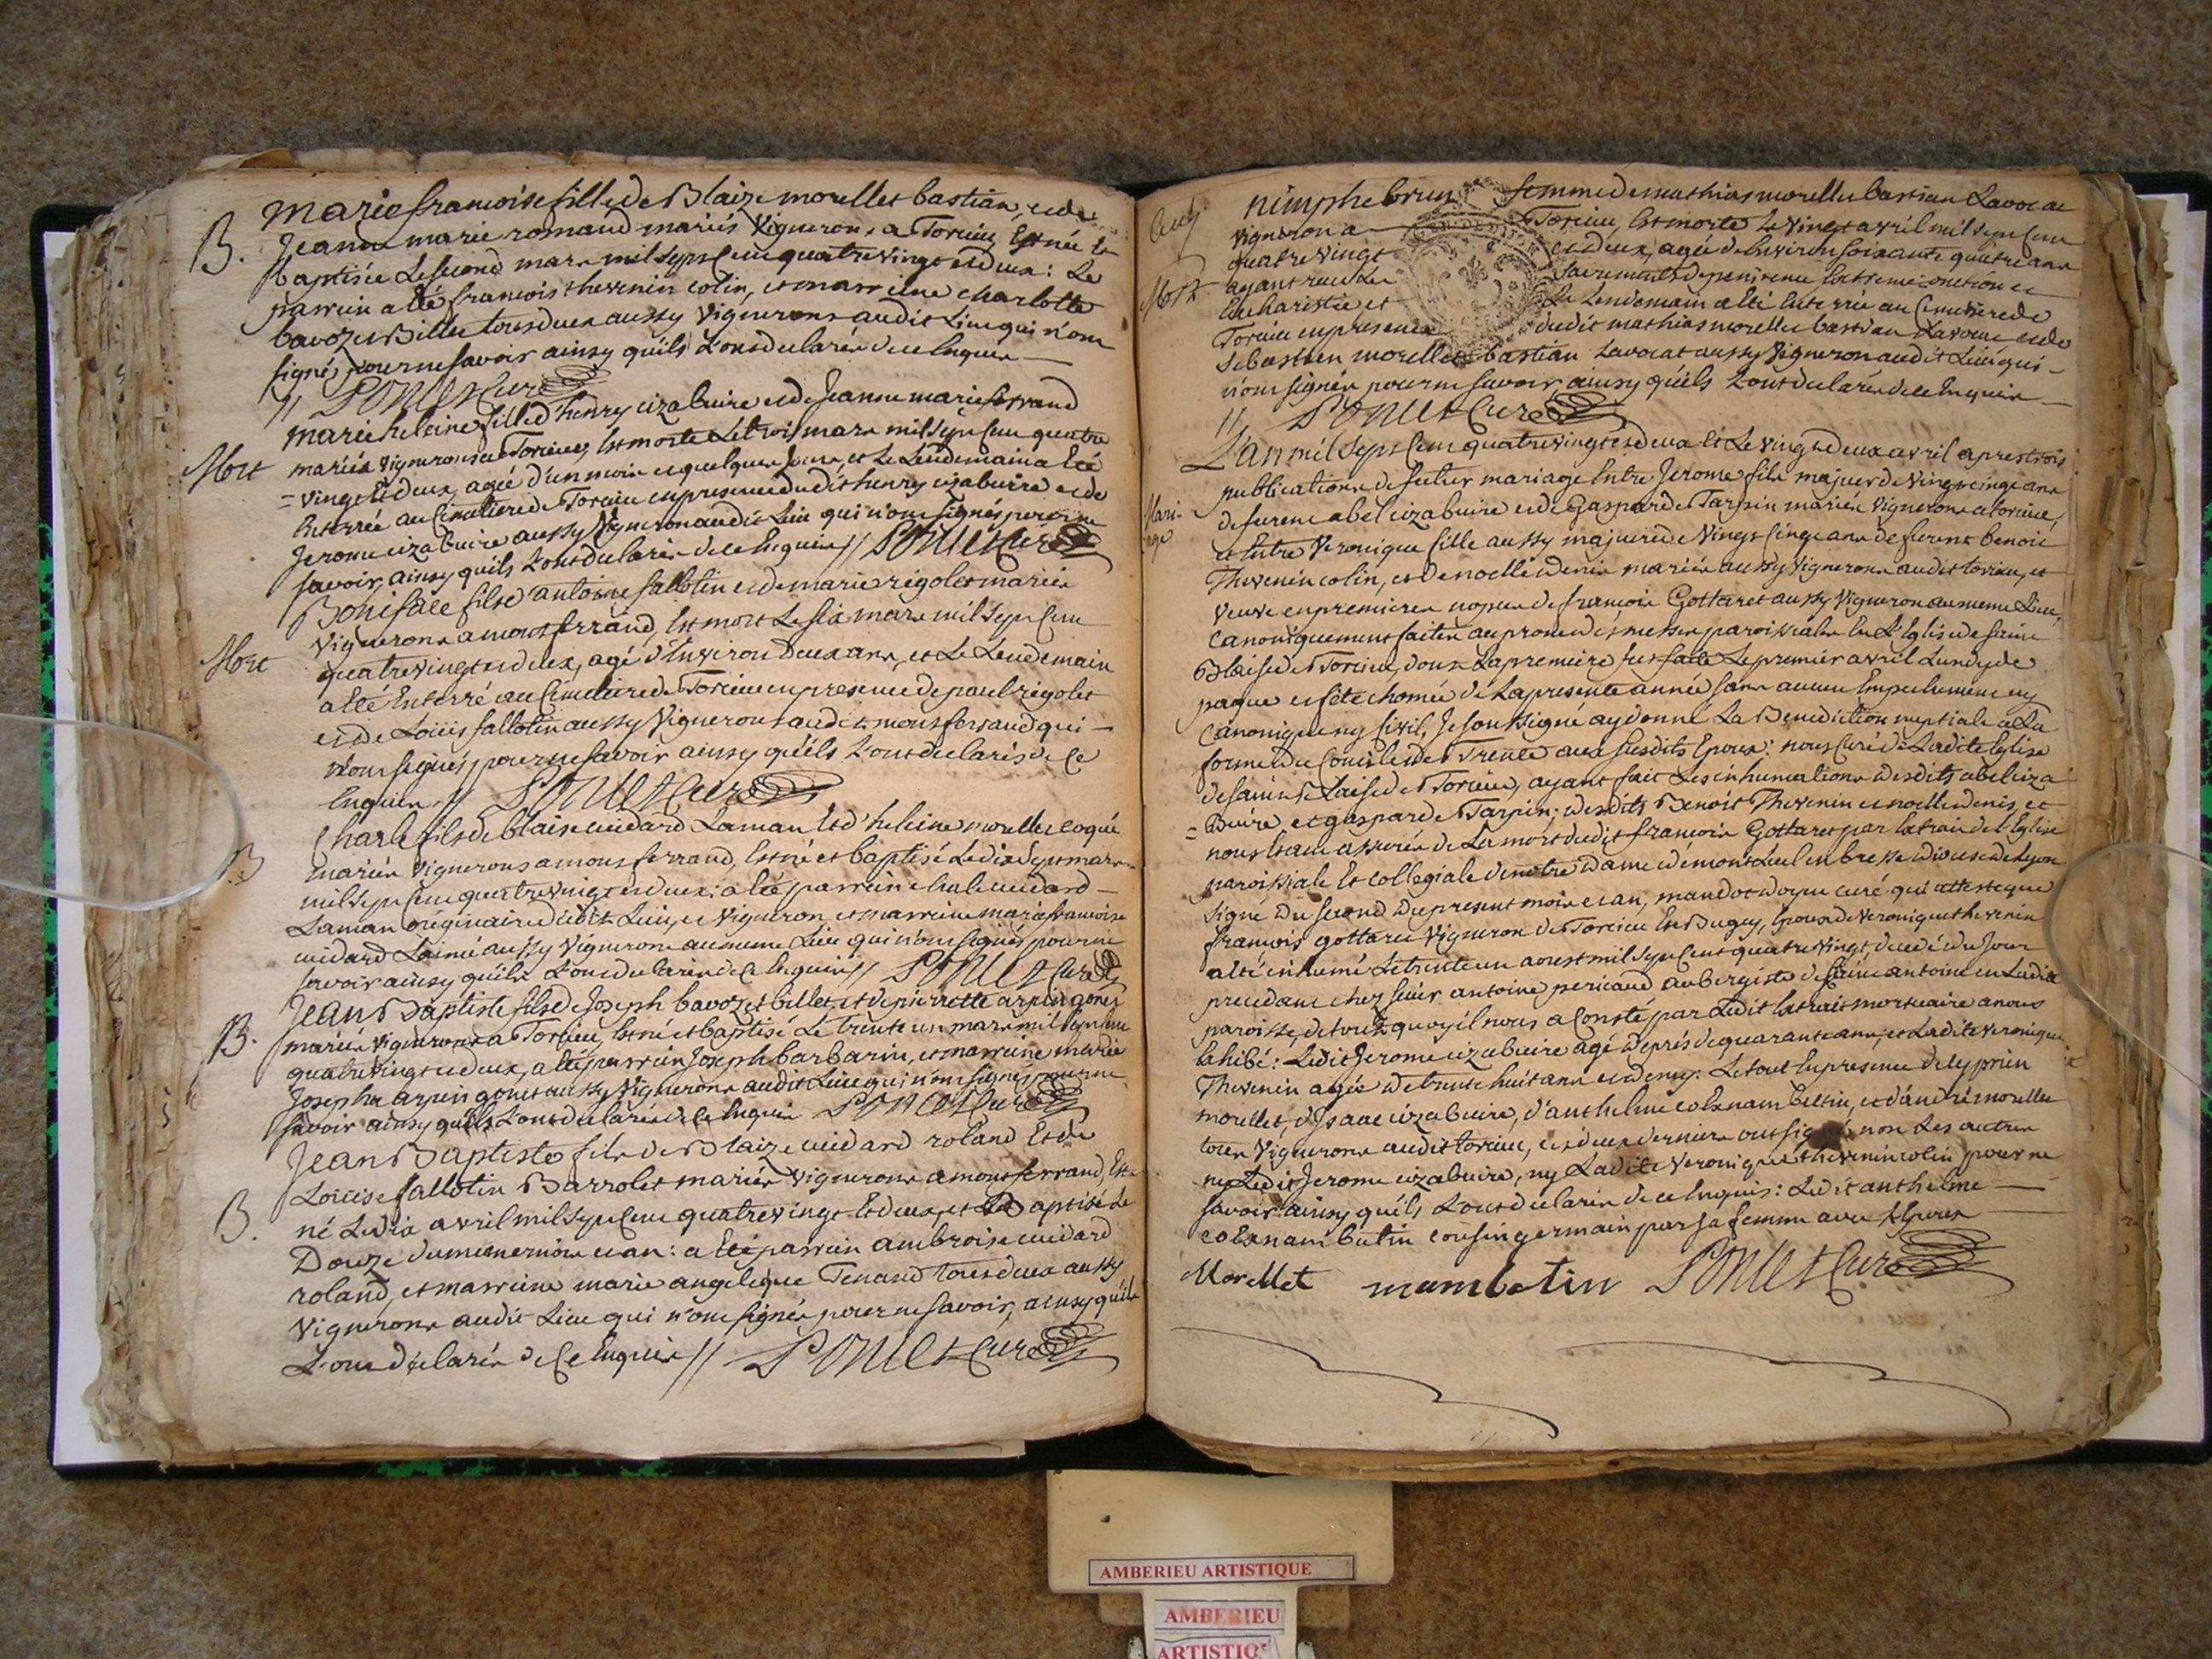 marie francoise fille de Blaize morellet bastian, et de
B. Jeanne marie romand mariés Vignerons a Torcieu, Est née et
baptisée Le second mars mil sept Cent quatre vingt et deux: Le
parrein a été francois thevenin colin, et marreine charlotte
bavozet Billet tous deux aussy Vignerons audit Lieu qui n'ont
signés pour ne savoir ainsy qu'ils L'ont declarés de ce Enquis
// Poncet Curé
marie heleine fille d'henry cizabuire et de Jeanne marie ferrand
Mort mariés Vignerons a Torcieu, Est morte Le trois mars mil sept Cent quatre
= vingt Et deux, agée d'un mois et quelques Jours, et Le Lendemain a Eté
Enterrée au Cimetiere de Torcieu en presence dudit henry cizabuire et de
Jerome cizabuire aussy Vigneron audit Lieu qui n'ont signés pour ne
savoir, ainsy qu'ils L'ont declarés de ce Enquis // Poncet Curé
Boniface fils d'antoine fallotin et de marie rigolet mariés
Vignerons a montferrand, Est mort Le six mars mil sept Cent
Mort quatre vingt et deux, agé d'Environ deux ans, et Le Lendemain
a été Enterré au Cimetiere de Torcieu en presence de paul rigolet
et de Loüis fallotin aussy Vignerons audit montferrand qui
n'ont signés pour ne savoir ainsy qu'ils L'ont declarés de Ce
Enquis // Poncet Curé
Charle fils de blaise cuidard Laman Et d'heleine morellet coquée
B mariés Vignerons a montferrand, Est né et baptisé Le dix sept mars
mil sept Cent quatre vingt et deux: a été parrein charle cuidard
Laman originaire dudit Lieu, et Vigneron et marreine marie francoise
cuidard L'ainée aussy Vigneronne au meme Lieu qui n'ont signés pour ne
savoir ainsy qu'ils L'ont declarés de Ce Enquis // Poncet Curé
Jean Baptiste fils de Joseph bavozet billet, et de pierrette arpin gonet
B. mariés Vignerons a Torcieu, Est né et baptisé Le trente un mars mil sept Cent
quatre vingt et deux, a été parrein Joseph barbarin, et marreine marie
Josephe arpin gonet aussy Vignerons audit Lieu qui n'ont signés pour ne
savoir ainsy qu'ils L'ont declarés de Ce Enquis Poncet Curé
Jean Baptiste fils de Blaize cuidard roland Et de
Loüise fallotin Barrolet mariés Vignerons a montferrand, Est
B. né Le dix avril mil sept Cent quatre vingt Et deux, et Baptisé Le
Douze du meme mois et an: a Eté parrein ambroise cuidard
roland, et marreine marie angelique Tenand tous deux aussy
Vignerons audit Lieu qui n'ont signés pour ne savoir, ainsy qu'ils
L'ont declarés de Ce Enquis // Poncet Curé
nimphe brun femme de mathias morellet bastian Lavocat
Vigneron a Torcieu, Est morte Le vingt avril mil sept Cent
quatre vingt et deux, agée d'Environ soixante quatre ans
Mort ayant recu Les sacrements de penitence Extreme onction et
Eucharistie et Le Lendemain a Eté Enterrée au Cimetiere de
Torcieu en presence dudit mathias morellet bastian Lavocat et de
Sebastien morellet bastian Lavocat aussy Vigneron audit Lieu qui
n'ont signés pour ne savoir, ainsy qu'ils L'ont declarés de ce Enquis
// Poncet Curé
L'an mil sept Cent quatre vingt et deux Et Le vingt deux avril apres trois
publications de futur mariage Entre Jerome fils majeur de Vingt cinq ans
Mari= de furent abel cizabuire et de Gasparde Tarpin mariés Vignerons a torcieu,
age et Entre Veronique fille aussy majeure de Vingt Cinq ans de furent benoit
Thevenin colin, et de noelle denis mariés aussy Vignerons audit torcieu, et
Veuve en premieres nopces de francois Gottaret aussy Vigneron au meme Lieu,
Canoniquement faites au prone des messes paroissiales En L'Eglise de saint
Blaise de Torcieu, dont La premiere fut faite Le premier avril Lundy de
paque et fête chomée de La presente année sans aucun Empechement ny
Canonique ny Civil, Je soussigné ay donné La Benediction nuptiale a La
forme du Concile de Trente aux susdits Epoux: nous Curé de Ladite Eglise
de saint Blaise de Torcieu, ayant fait Les inhumations desdits abel ciza
= Buire et gasparde Tarpin; desdits Benoit Thevenin et noelle denis, et
nous Etant assurés de La mort dudit francois Gottaret par Extrait de L'Eglise
paroissiale Et collegiale de nôtre dame de montluel en bresse diocese de Lyon
signé du second du present mois et an, mandot doyen curé qui atteste que
francois gottaret Vigneron de Torcieu En Bugey, Epoux de Veronique thevenin
a été inhumé Le trente un aoust mil sept Cent quatre Vingt, decedé du Jour
precedant chez sieur antoine pericaud aubergiste de saint antoine en Ladite
paroisse, de tout quoy il nous a Consté par Ledit Extrait mortuaire a nous
Exhibé: Ledit Jerome cizabuire agé de prés de quarante ans, et Ladite Veronique
Thevenin agée de trente huit ans et demy: Le tout En presence de Cyprien
morellet, d'Isaac cizabuire, d'anthelme colxnam betin, et d'andré morellet
tous Vignerons audit torcieu, Les deux derniers ont signé non Les autres
ny Ledit Jerome cizabuire, ny Ladite Veronique thevenin colin pour ne
savoir ainsy qu'ils L'ont declarés de ce Enquis: Ledit anthelme
colxnam betin cousin germain par sa femme avec Epoux
Morellet mambetin Poncet Curé
AMBERIEU ARTISTIQUE
AMBERIEU